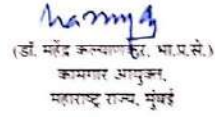 (डॉ. महेंद्र कल्याणकर, भा.प्र.से.)
कामगार आयुक्त,
महाराष्ट्र राज्य, मुंबई